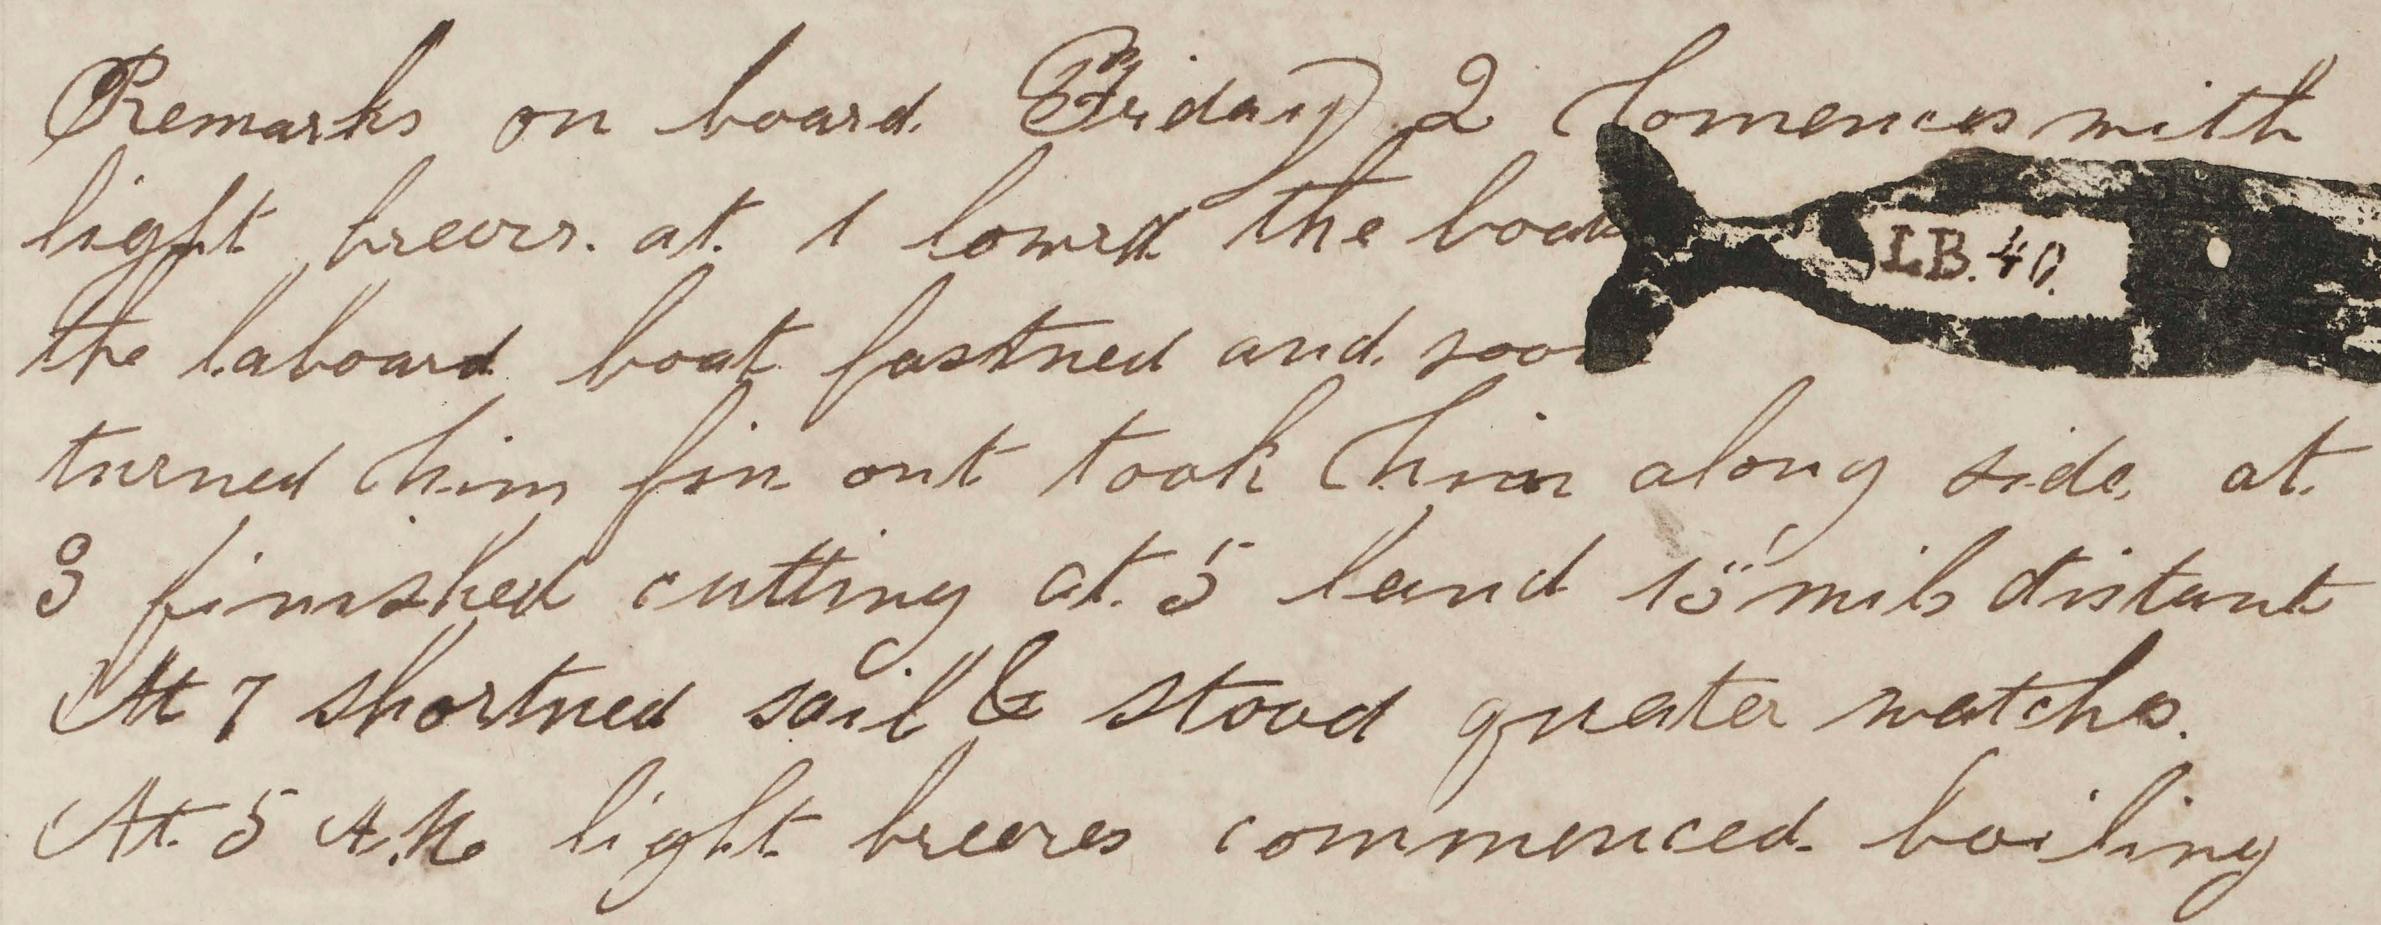 Remarks on board Friday 2 Comences with
light breezs. at 1 lowrd the boats
L.B. 40.
the laboard boat fastned and soon
turned him fin out took him along side, at
3 finished cutting at 5 land 15 mils distant
At 7 shortned sail & stood quater watches.
At 5 A.M. light breezes commenced boiling